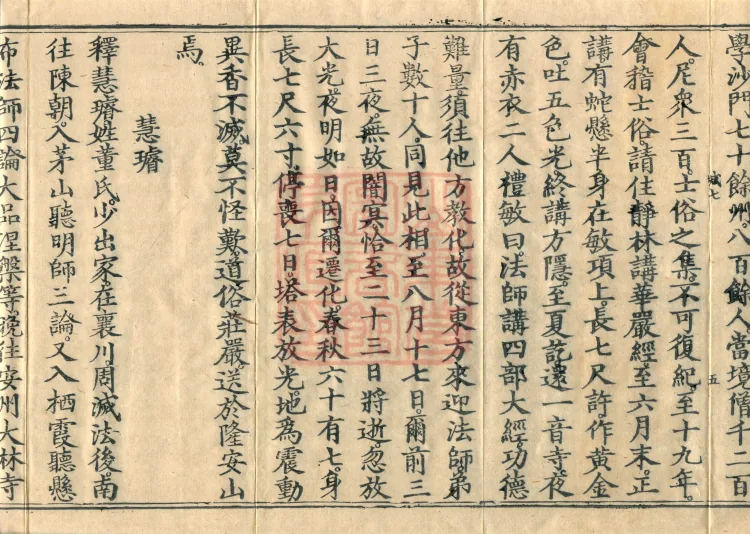 學沙門七十餘州。八百餘人當境僧千二百
人。尼衆三百。士俗之集。不可復紀。至十九年。
會稽士俗。請住靜林講華嚴經。至六月末。正
講有蛇懸半身在敏項上。長七尺許作黃金
色。吐五色光。終講方隱。至夏訖。還一音寺。夜
有赤衣二人禮敏曰。法師講四部大經。功德
難量。須往他方教化。故從東方來迎法師。弟
子數十人。同見此相。至八月十七日。爾前三
日三夜。無故闇冥。恰至二十三日將逝。忽放
大光。夜明如日。因爾遷化。春秋六十有七。身
長七尺六寸。停喪七日。塔表放光。地爲震動
異香不滅。莫不怪歎。道俗莊嚴。送於隆安山
焉。
慧璿
釋慧璿。姓董氏。少出家。在襄川周滅法後。南
往陳朝。入茅山聽明師三論。又入栖霞聽懸
布法師四論大品涅槃等。晚往安州大林寺
五